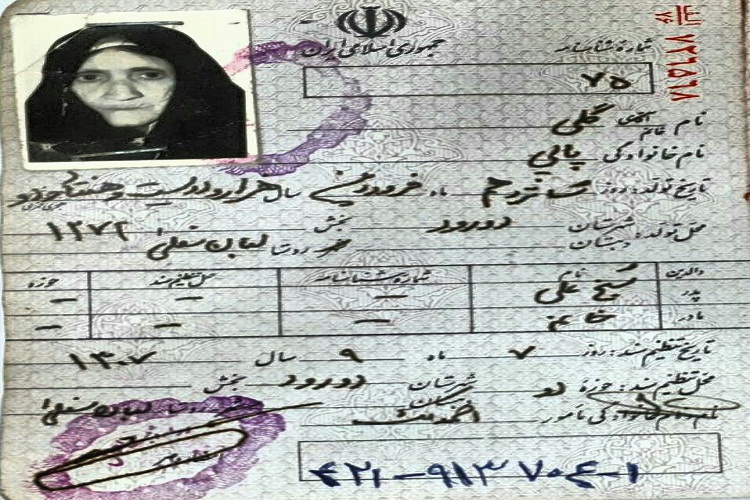 جمهوری اسلامی ایران
شماره شناسنامه
الف
۷۶
۷۲۹۵۶۸
۷۵
نام آقای خانم گلی
نام خانوادگی پاپی
تاریخ تولد: روز شانزدهم ماه فروردین سال هزار و دویست و هفتاد و دو
۱۲۷۲
محل تولد: شهرستان دورود بخش
دهستان روستا
والدین نام شماره شناسنامه محل تنظیم سند حوزه
پدر — — —
مادر خانم — — —
تاریخ تنظیم سند: روز ۷ ماه ۹ سال ۱۳۰۷
محل تنظیم سند: حوزه دو شهرستان دورود بخش
نام و نام خانوادگی مامور
۴۲۱-۹۱۳۷۰۴-۱